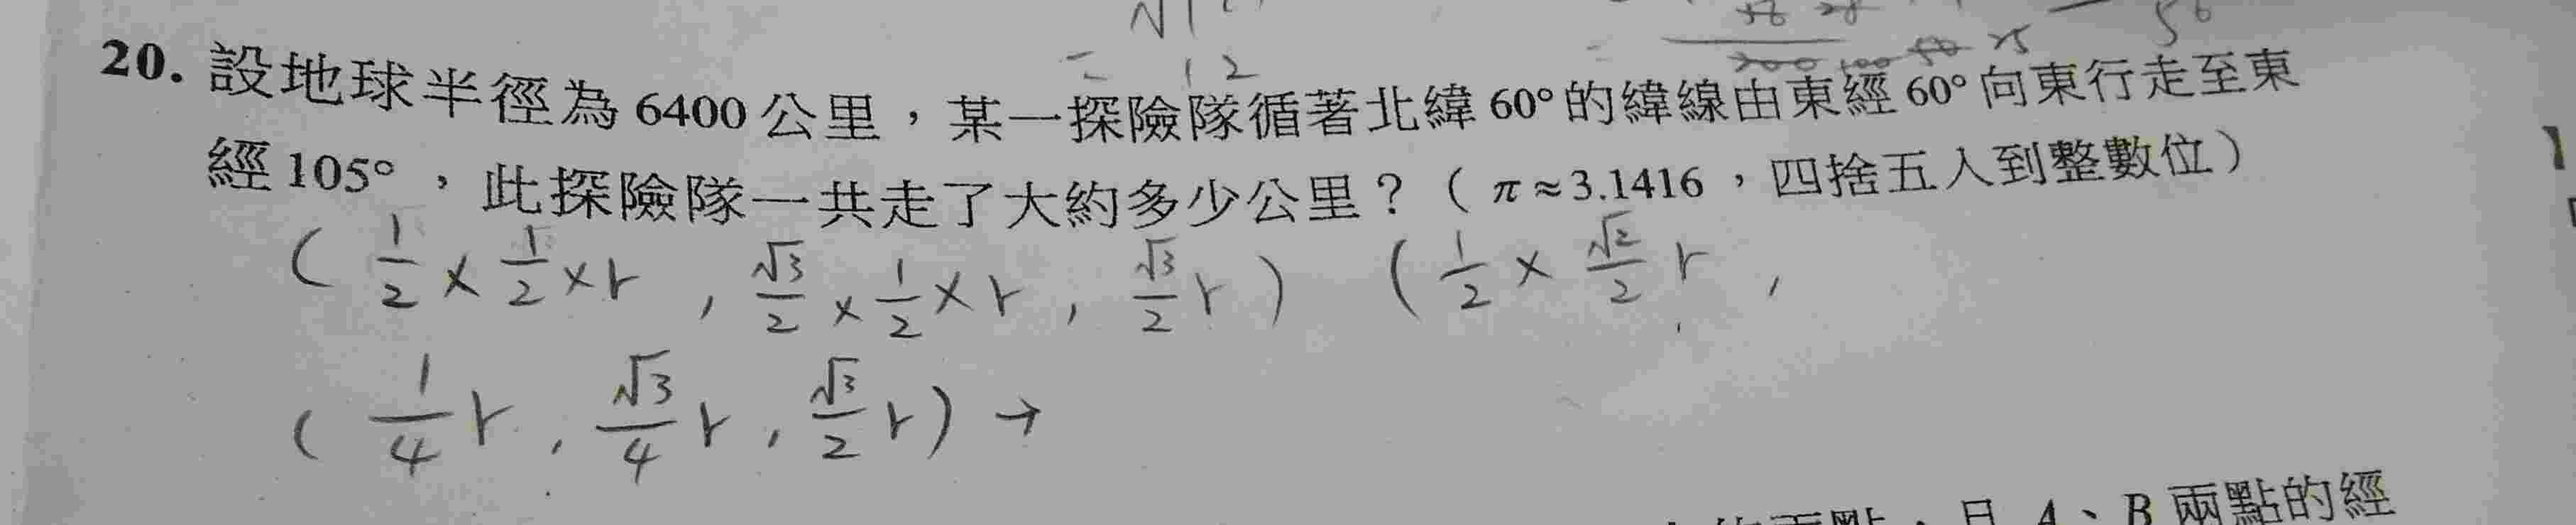 = 12
20. 設地球半徑為 6400 公里，某一探險隊循著北緯 60° 的緯線由東經 60° 向東行走至東
經 105°，此探險隊一共走了大約多少公里？（π≈3.1416，四捨五入到整數位）
( 1/2 × 1/2 × r , √3/2 × 1/2 × r , √3/2 r ) ( 1/2 × √2/2 r ,
( 1/4 r , √3/4 r , √3/2 r ) →
兩點，且 A、B 兩點的經